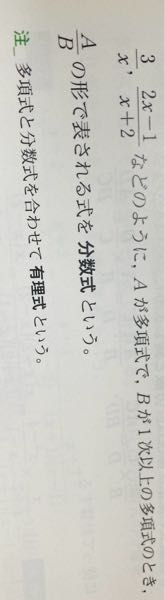 3/x, (2x−1)/(x+2) などのように, A が多項式で, B が1次以上の多項式のとき,
A/B の形で表される式を 分数式 という。
注 多項式と分数式を合わせて 有理式 という。